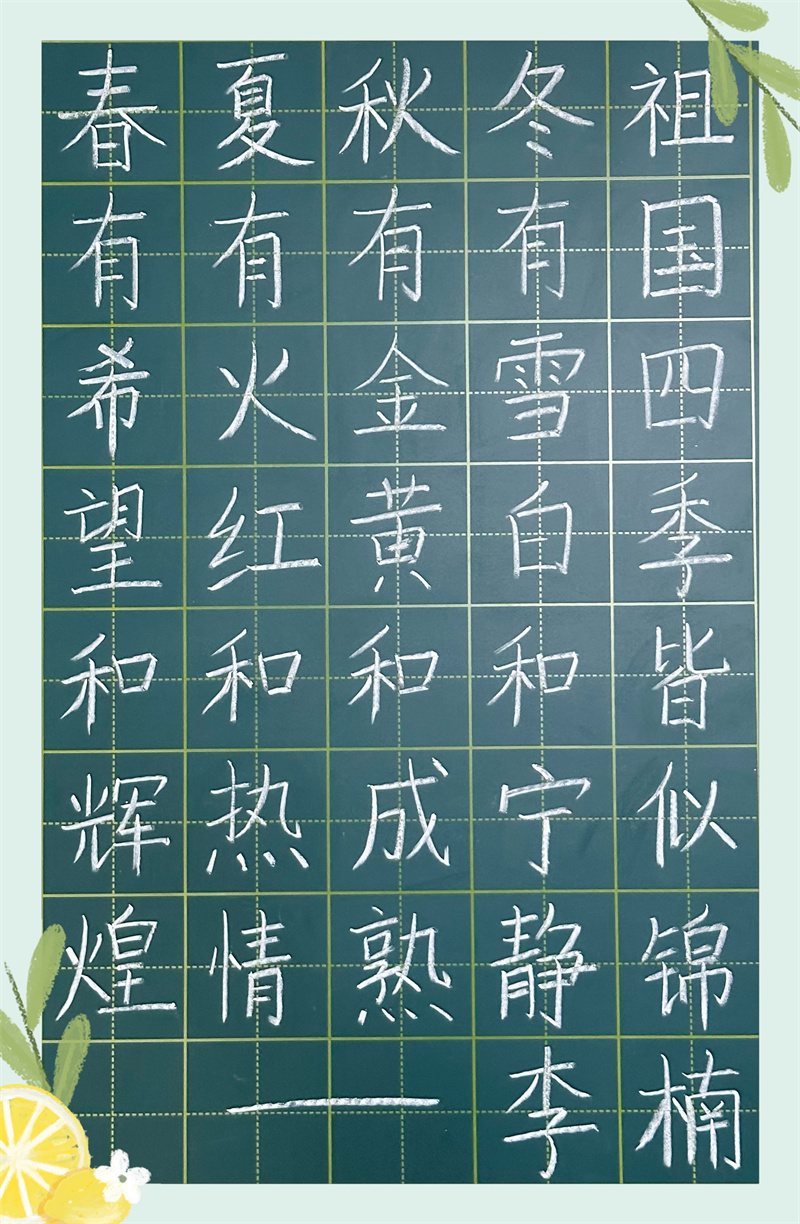 春有希望和辉煌
夏有火红和热情
秋有金黄和成熟
冬有雪白和宁静
祖国四季皆似锦
—李楠